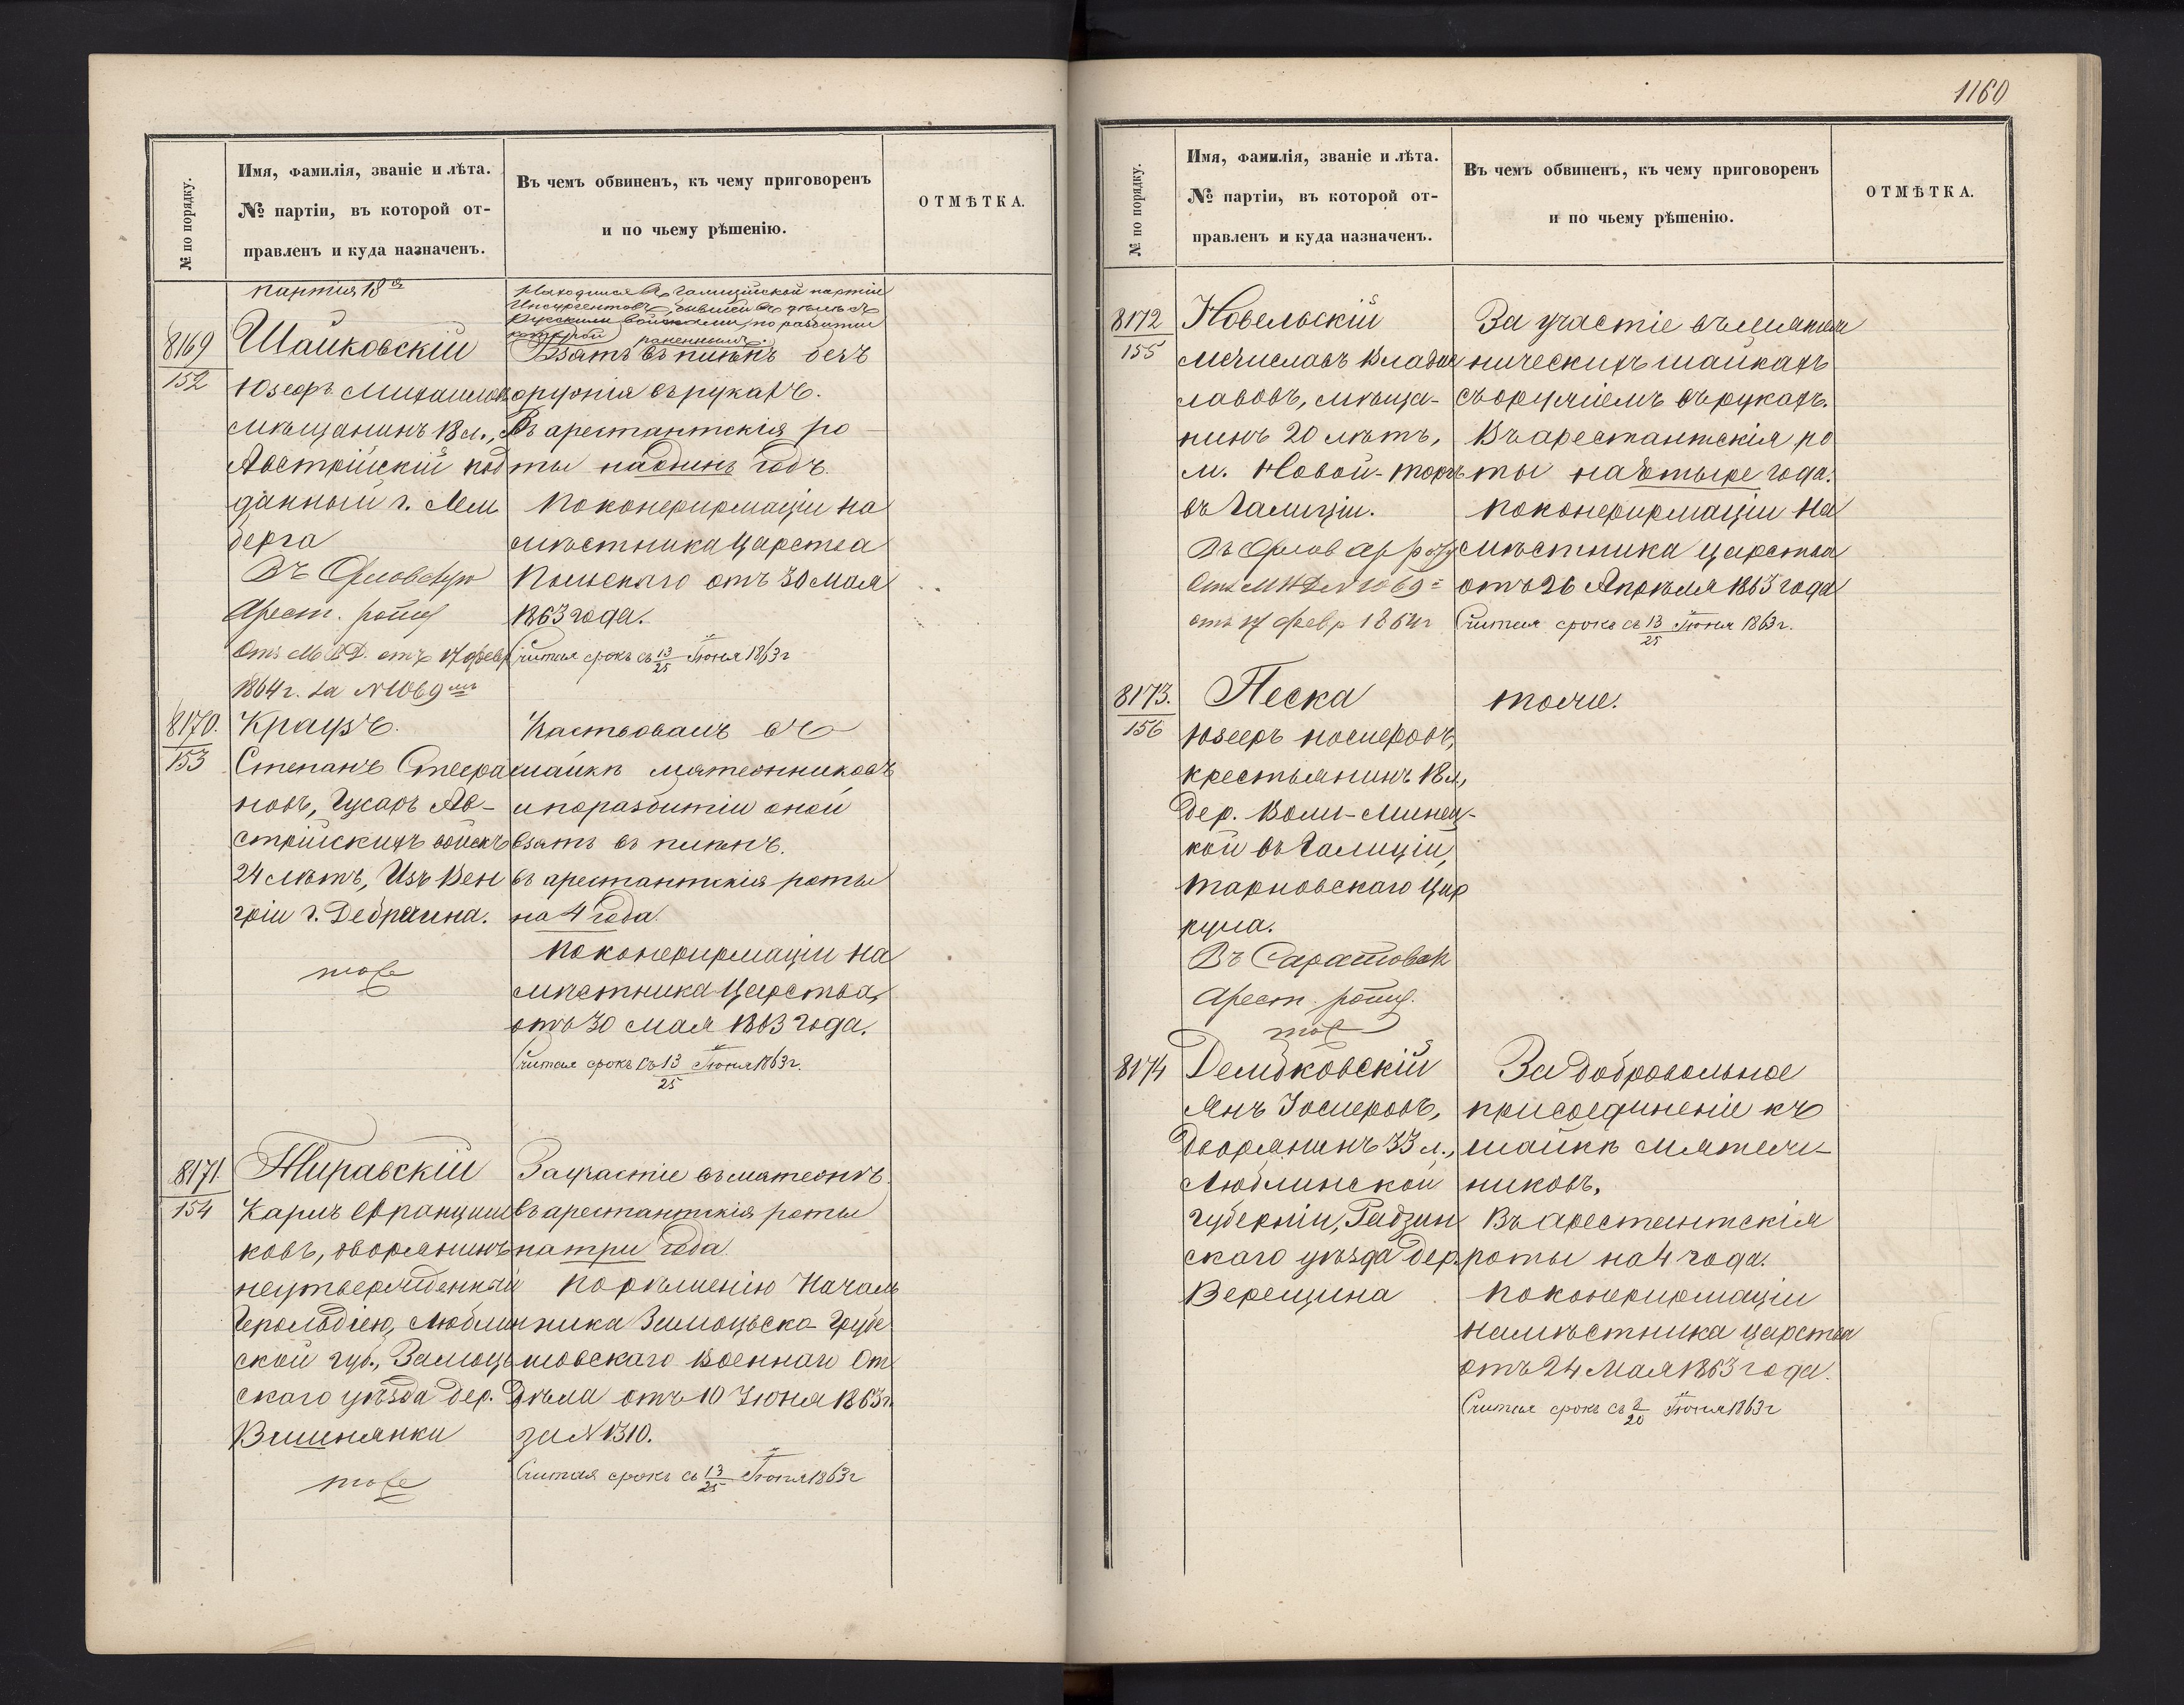 1160
№ по порядку.
Имя, фамилія, званіе и лѣта.
№ партіи, въ которой от-
правленъ и куда назначенъ.
Въ чемъ обвиненъ, къ чему приговоренъ
и по чьему рѣшенію.
ОТМѢТКА.
партія 18я
8169
152
Шайковскій
Юзефъ Михаиловъ
мѣщанинъ 18 л.,
Австрійскій под
данный г. Лем
берга
Въ Орловскую
Арест. роту
Отн. М.В.Д. отъ 17 февр
1864 г. за №1069
Находился въ Галиційской партіи
Инсургентовъ, бывшей въ дѣлѣ съ
Русскими войсками, по разбитіи
которой раненнымъ
Взятъ въ плѣнъ безъ
оружія въ рукахъ.
Въ арестантскія ро
ты на одинъ годъ.
По конфирмаціи На
мѣстника Царства
Польскаго отъ 30 Мая
1863 года.
Считая срокъ съ 13/25 Іюня 1863 г
8170.
153
Краузъ.
Степанъ Стефа
новъ, Гусаръ Ав-
стрійскихъ войскъ
24 лѣтъ, Изъ Вен
гріи г. Дебречина.
тоже
Участвовалъ въ
шайкѣ мятежниковъ
и по разбитіи оной
взятъ въ плѣнъ.
въ арестантскія роты
на 4 года.
По конфирмаціи На
мѣстника Царства,
отъ 30 Мая 1863 года.
Считая срокъ съ 13/25 Іюня 1863 г.
8171.
154
Жиравскій
Карлъ Францыш
ковъ, дворянинъ
неутвержденный
Герольдіею, Люблин
ской губ., Замоць
скаго уѣзда дер.
Вишнянки
тоже
За участіе въ мятежѣ.
въ арестантскія роты
на три года.
По рѣшенію Началь
ника Замоцьско-Грубе
шовскаго Военнаго От
дѣла отъ 10 Іюня 1863 г.
за №1310.
Считая срокъ съ 13/25 Іюня 1863 г
№ по порядку.
Имя, фамилія, званіе и лѣта.
№ партіи, въ которой от-
правленъ и куда назначенъ.
Въ чемъ обвиненъ, къ чему приговоренъ
и по чьему рѣшенію.
ОТМѢТКА.
8172
155
Новельскій
Мечиславъ Владис
лавовъ, мѣща-
нинъ 20 лѣтъ,
м. Новой-Торгъ
въ Галиціи.
Въ Орлов ар роту
Отн. МВД №1069
отъ 17 февр 1864 г
За участіе въ мятеж
ническихъ шайкахъ
съ оружіемъ въ рукахъ.
Въ арестантскія ро
ты на четыре года.
По конфирмаціи На
мѣстника Царства
отъ 26 Апрѣля 1863 года
Считая срокъ съ 13/25 Іюня 1863 г.
8173.
156
Песка
Юзефъ Іосифовъ,
крестьянинъ 18 л.,
дер. Воли-Минец-
кой въ Галиціи,
Тарновскаго Цир
кула.
Въ Саратовск
Арест. роту.
тож
тоже.
8174
Дембковскій
Янъ Іосифовъ,
дворянинъ 33 л.,
Люблинской
губерніи, Радзин
скаго уѣзда дер.
Верещина
За добровольное
присоединеніе къ
шайкѣ мятеж-
никовъ.
Въ арестантскія
роты на 4 года.
По конфирмаціи
Намѣстника Царства
отъ 24 Мая 1863 года.
Считая срокъ съ 8/20 Іюня 1863 г